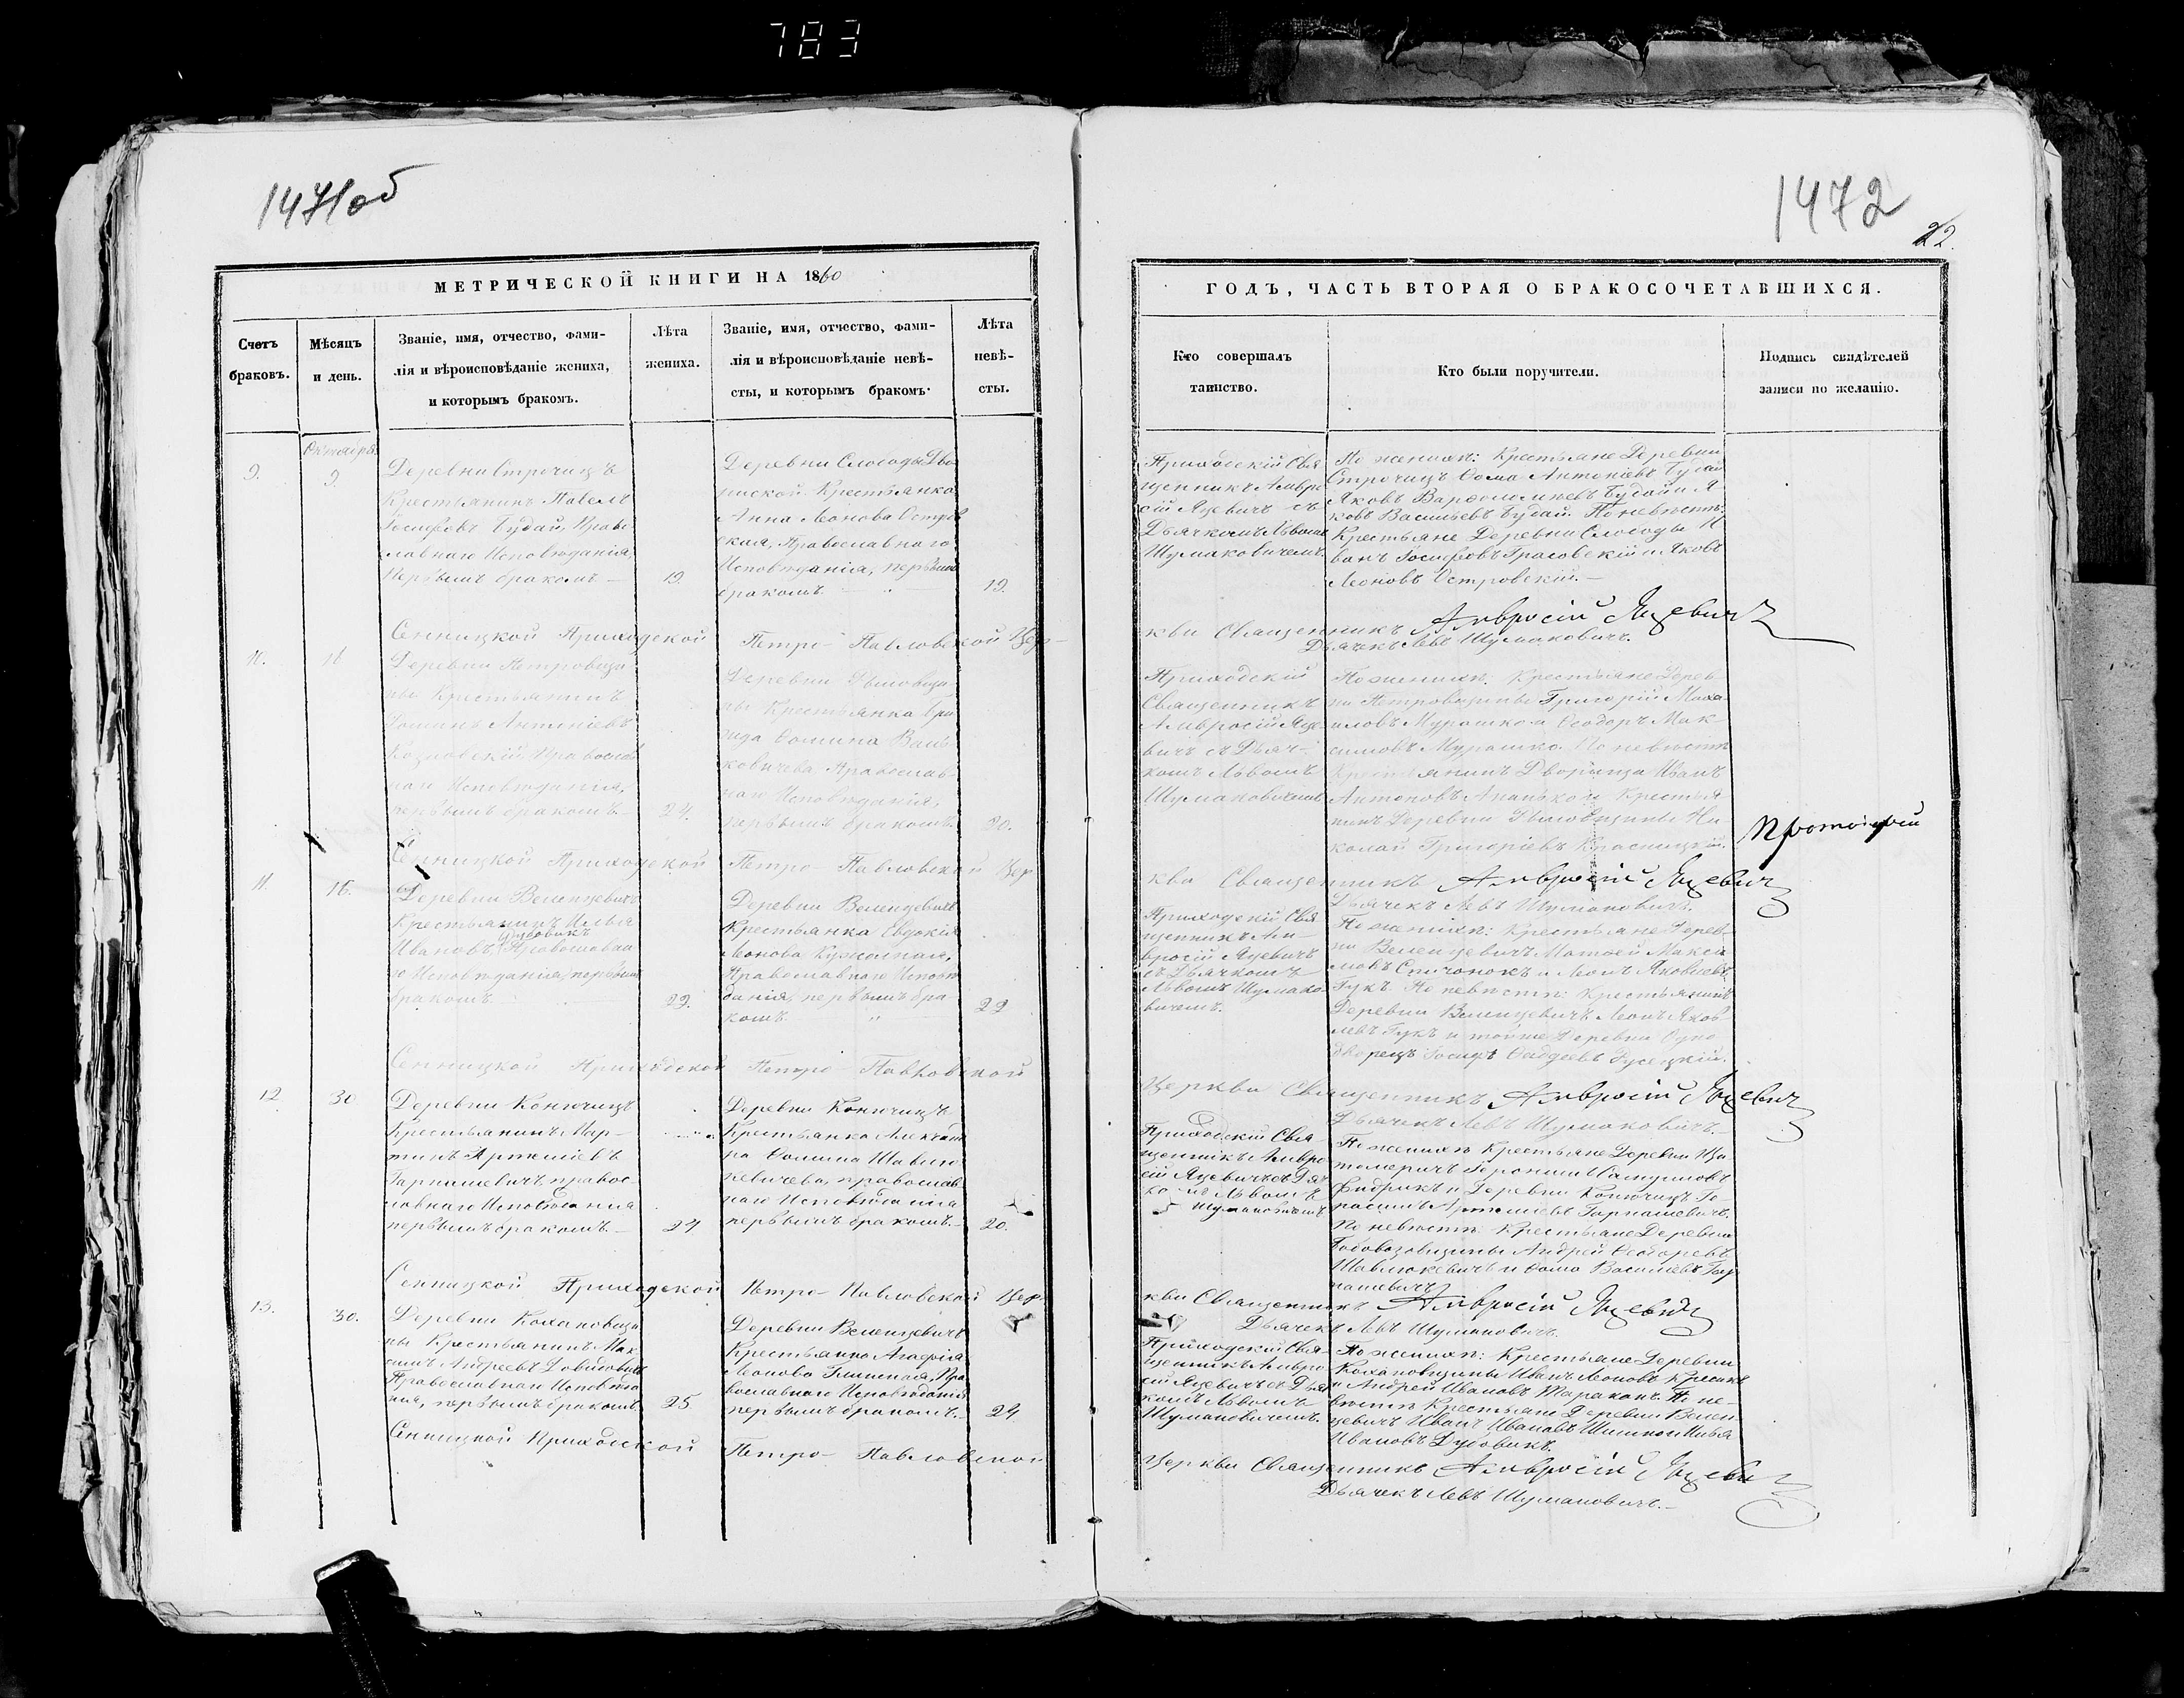 783
1471об
МЕТРИЧЕСКОЙ КНИГИ НА 1860
Счетъ
браковъ.
Мѣсяцъ
и день.
Званіе, имя, отчество, фами-
лія и вѣроисповѣданіе жениха,
и которымъ бракомъ.
Лѣта
жениха.
Званіе, имя, отчество, фами-
лія и вѣроисповѣданіе невѣ-
сты, и которымъ бракомъ.
Лѣта
невѣ-
сты.
Октября
9.
9
Деревни Строчицъ
Крестьянинъ Павелъ
Іосифовъ Будай, Право
славнаго Исповѣданія,
Первымъ бракомъ —
19.
Деревни Слободы
Крестьянка
Анна Леонова Остров
ская, Православнаго
Исповѣданія, первымъ
бракомъ
19.
Сенницкой Приходской Петро-Павловской Цер-
10.
11
Деревни Петровщи
ны Крестьянинъ
Антоніевъ
Козловскій Православ
наго Исповѣданія,
первымъ бракомъ.
24.
Деревни
ны Крестьянка
Ѳомина Вань
ковичева Православ
наго Исповѣданія,
первымъ бракомъ.
20.
Сенницкой Приходской Петро-Павловской Цер
11.
16.
Деревни Веленцевичъ
Крестьянинъ Илья
Ивановъ Дудовикъ Православна
го Исповѣданія, первымъ
бракомъ
22.
Деревни Веленцевичъ
Крестьянка Евдокія
Леонова
Православнаго Исповѣ
данія, первымъ бра
комъ "
22
Сенницкой Приходской Петро-Павловской
12
30
Деревни Конючицъ
Крестьянинъ Мар-
тинъ Артеміевъ
Гарнашевичъ, правос-
лавнаго Исповѣданія
первымъ бракомъ.
24
Деревни Конючицъ
Крестьянка Александ
ра Ѳомина Шавлю
кевичева, православ
наго Исповѣданія
первымъ бракомъ.
20.
Сенницкой Приходской Петро-Павловской Цер.
13.
30.
Деревни Кохановщи
ны Крестьянинъ Мак
симъ Андреевъ
Православнаго Исповѣда
нія, первымъ бракомъ
25
Деревни Веленцевичъ
Крестьянка Агафія
Леонова, Пра
вославнаго Исповѣданія
первымъ бракомъ.
24
Сенницкой Приходской Петро-Павловской
1472
22.
ГОДЪ, ЧАСТЬ ВТОРАЯ О БРАКОСОЧЕТАВШИХСЯ.
Кто совершалъ
таинство.
Кто были поручители.
Подпись свидѣтелей
записи по желанію.
Приходскій Свя
щенникъ Амвро
сій Яцевичъ съ
Дьячкомъ Львомъ
Шумаковичемъ.
По женихѣ: Крестьяне Деревни
Строчицъ Ѳома Антоніевъ Будай
Яковъ Варѳоломеевъ Будай и Я
ковъ Васильевъ Будай. По невѣстѣ:
Крестьяне Деревни Слободы И
ванъ Іосифовъ и Яковъ
Леоновъ Островскій. —
кви Священникъ Амвросій Яцевичъ
Дьячекъ Левъ Шумаковичъ.
Приходскій
Священникъ
Амвросій Яце
вичъ съ Дьяч-
комъ Львомъ
Шумаковичемъ
По женихѣ: Крестьяне Дерев
ни Петровщины Григорій Миха
иловъ Мурашко и Ѳеодоръ Мак-
симовъ Мурашко. По невѣстѣ
Крестьянинъ Дворища Иванъ
Антоновъ и Крестья
нинъ Деревни Ни
колай Григоріевъ
Протоіерей
кви Священникъ Амвросій Яцевичъ
Дьячекъ Левъ Шумаковичъ.
Приходскій Свя
щенникъ Ам-
вросій Яцевичъ
съ Дьячкомъ
Львомъ Шумако
вичемъ.
По женихѣ: Крестьяне Дерев
ни Веленцевичъ Матѳей Макси
мовъ и Леонъ Яковлевъ
Гукъ. По невѣстѣ: Крестьянинъ
Деревни Веленцевичъ Леонъ Яков
левъ Гукъ и тойже Деревни Одно
дворецъ Іосифъ Ѳаддеевъ
Церкви Священникъ Амвросій Яцевичъ
Дьячекъ Левъ Шумаковичъ.
Приходскій Свя-
щенникъ Амвро
сій Яцевичъ съ Дьяч
комъ Львомъ
Шумаковичемъ
По женихѣ Крестьяне Деревни
и Деревни Конючицъ Ге-
расимъ Артеміевъ Гарнашевичъ.
По невѣстѣ Крестьяне Деревни
Андрей Ѳеодоровъ
Шавлюкевичъ и Ѳома Васильевъ Гар
нашевичъ
кви Священникъ Амвросій Яцевичъ
Дьячекъ Левъ Шумаковичъ.
Приходскій Свя-
щенникъ Амвро
сій Яцевичъ съ Дьяч
комъ Львомъ
Шумаковичемъ.
По женихѣ: Крестьяне Деревни
Кохановщины Иванъ Леоновъ
и Андрей Ивановъ Тараканъ. По не-
вѣстѣ Крестьяне Деревни Велен
цевичъ Иванъ Ивановъ и Илья
Ивановъ Дудовикъ.
Церкви Священникъ Амвросій Яцевичъ
Дьячекъ Левъ Шумаковичъ. —